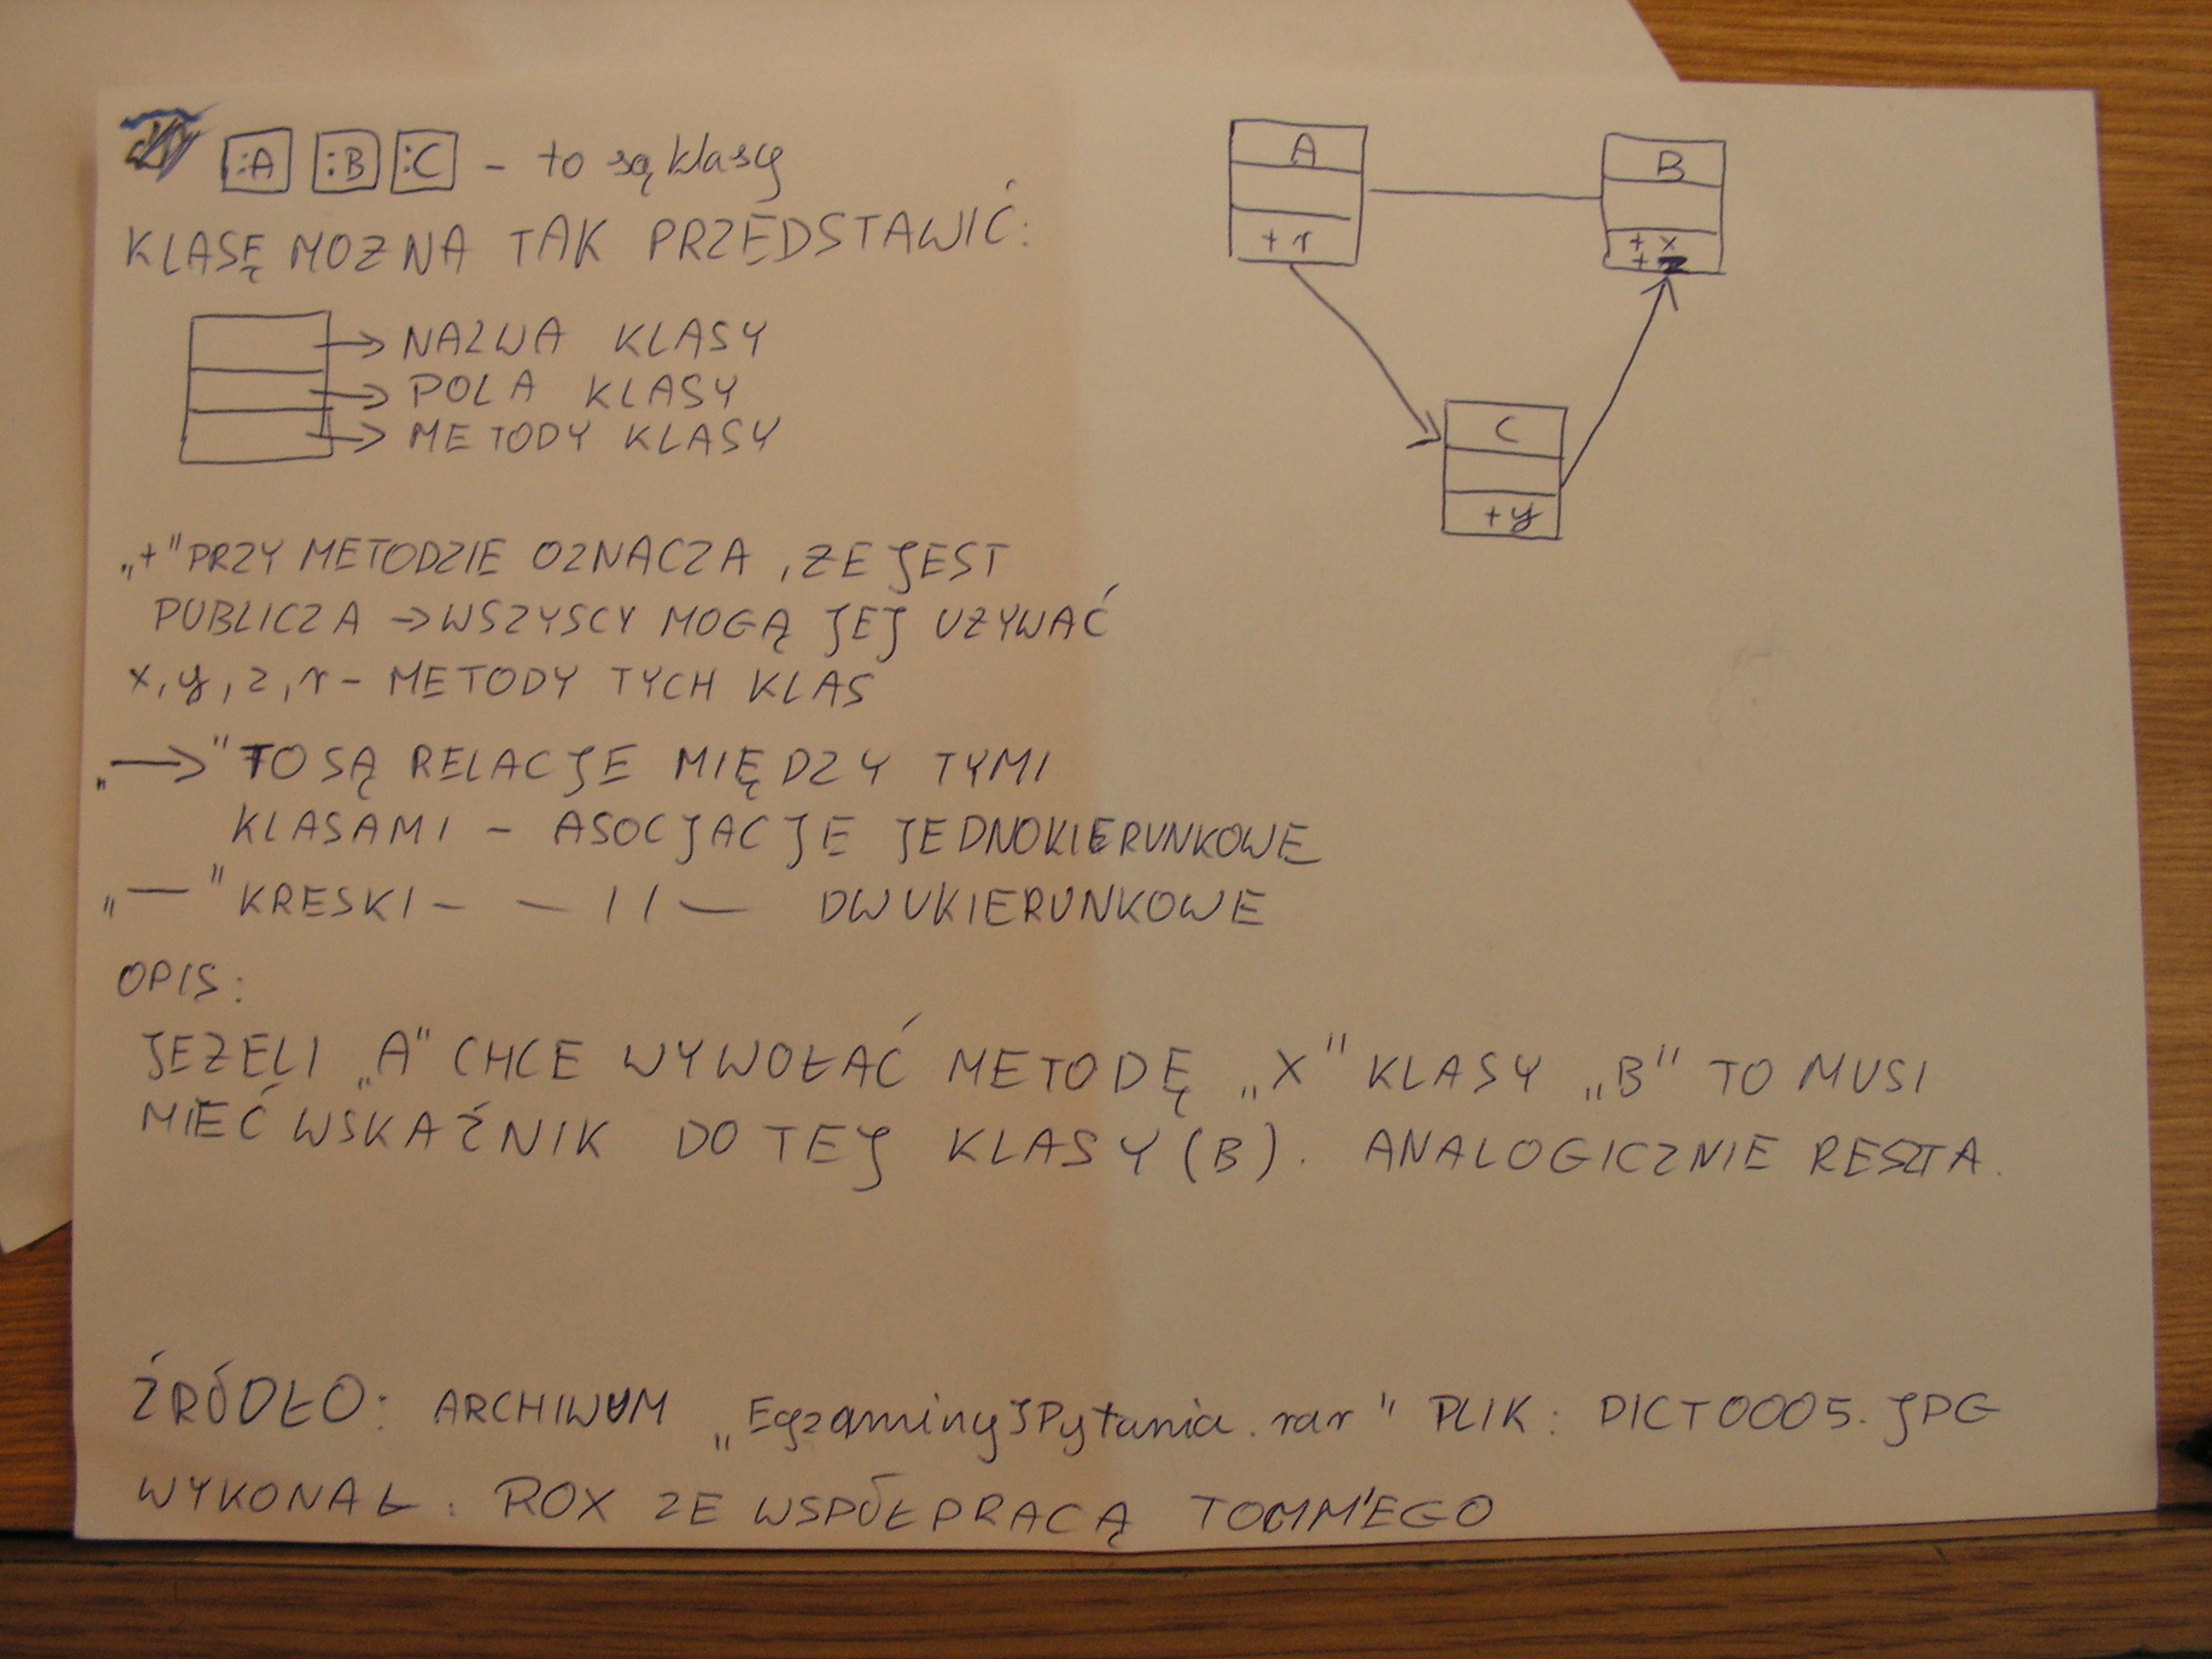 :A :B :C - to są klasy
KLASĘ MOZNA TAK PRZEDSTAWIĆ:
→ NAZWA KLASY
→ POLA KLASY
→ METODY KLASY
„+" PRZY METODZIE OZNACZA, ZE JEST
PUBLICZA → WSZYSCY MOGĄ JEJ UZYWAĆ
x, y, z, r - METODY TYCH KLAS
„→" TO SĄ RELACJE MIĘDZY TYMI
KLASAMI - ASOCJACJE JEDNOKIERUNKOWE
„—" KRESKI - — 11 — DWUKIERUNKOWE
OPIS:
JEZELI „A" CHCE WYWOŁAĆ METODĘ „X" KLASY „B" TO MUSI
MIEĆ WSKAŹNIK DO TEJ KLASY (B). ANALOGICZNIE RESZTA.
ŹRÓDŁO: ARCHIWUM „EgzaminyJPytania.rar" PLIK: PICT0005.JPG
WYKONAŁ: ROX ZE WSPÓŁPRACĄ TOMM'EGO
A
+ r
B
+ x
+ z
C
+ y